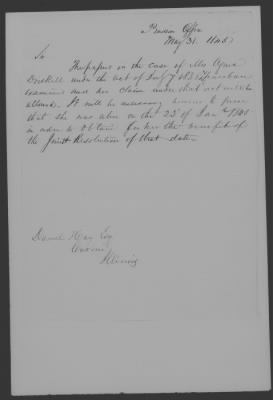 Pension Office
May 31. 1845
Sir
The papers in the case of Mrs Agnes
Driskill under the act of July 7 1838 have been
examined and her claim under that act
allowed. It will be necessary however to prove
that she was alive on the 23d of Jany 1843
in order to obtain for her the benefit of
the Joint Resolution of that date.
Daniel Hay Esq
Carmi
Illinois